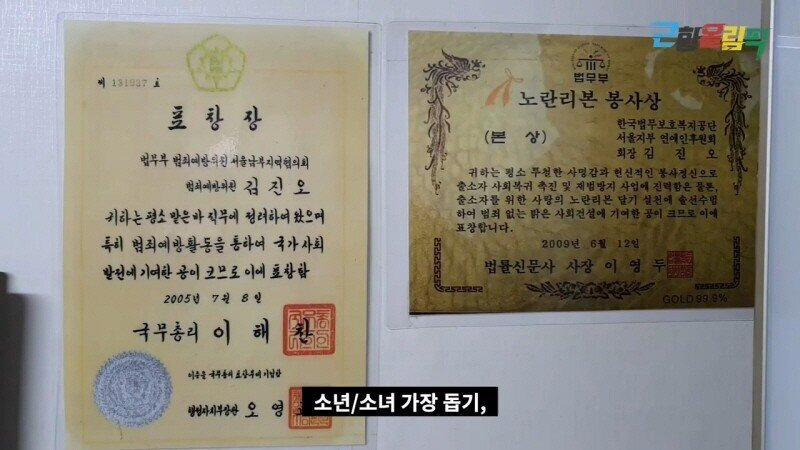 근황올림픽
제 131927 호
표 창 장
법무부 범죄예방위원 서울남부지역협의회
범죄예방위원 김 진 오
귀하는 평소 맡은바 직무에 정려하여 왔으며
특히 범죄예방활동을 통하여 국가 사회
발전에 기여한 공이 크므로 이에 표창함
2005년 7월 8일
국무총리 이 해 찬
이 증을 국무총리 표창부에 기입함
행정자치부장관 오 영
법무부
노란리본 봉사상
(본 상)
한국법무보호복지공단
서울지부 연예인후원회
회장 김 진 오
귀하는 평소 투철한 사명감과 헌신적인 봉사정신으로
출소자 사회복귀 촉진 및 재범방지 사업에 진력함은 물론,
출소자를 위한 사랑의 노란리본 달기 실천에 솔선수범
하여 범죄 없는 밝은 사회건설에 기여한 공이 크므로 이에
표창합니다.
2009년 6월 12일
법률신문사 사장 이 영 두
GOLD 99.9%
소년/소녀 가장 돕기,